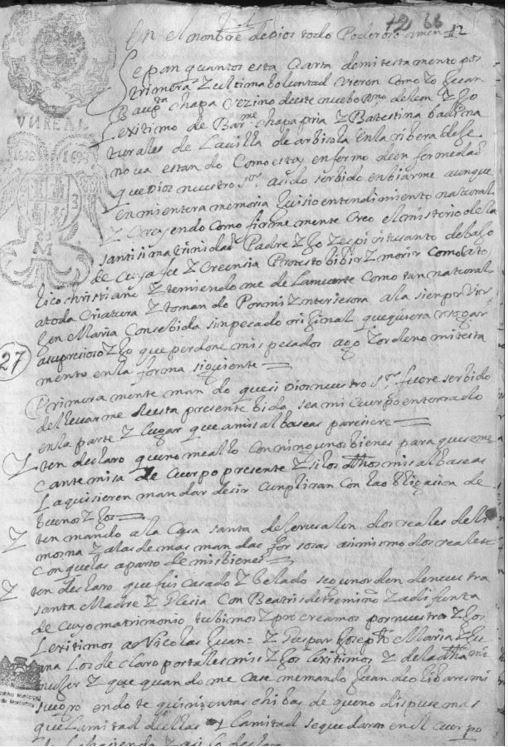 12 66
En el nombre de Dios todo Poderoso amen 12
Sepan quantos esta Carta de mi testamento pos
trimera Z ultima boluntad vieren como Zo Juan
Baupta chapa Vezino deeste nuebo Rno de leon Z hijo
lexitimo de Barme chapapria Z Batestina badi na
turalles de La villa de arbisola En la ribera de Je
noua estando Como estoy enfermo de en fermedad
que Dios nuestro Sor a sido serbido en biarme aunque
en mi entera memoria Juisio entendimiento natural
Z Creyendo como firme mente Creo el misterio de la
santisima trinidad Padre Z hijo Z espiritu santo debajo
de Cuya fee Z Creencia Protesto bibir Z morir como cato
lico christiano Z temiendo me de La muerte Como tan natural
a toda Criatura Z tomando Por mi Zntersesora a la siempre Vir
gen Maria Consebida sin pecado original que quiera rrogar
a su presioso Zijo que perdone mis pecados ago Z ordeno mi testa
27
mento en la forma siguiente
Primera mente mando que si Dios nuestro Sr fuere serbido
de lleuarme de esta presente bida sea mi Cuerpo enterrado
en la parte Z Lugar que a mis albaseas paresiere
Z ten declaro que no me allo con ningunos bienes para que se me
Cante misa de Cuerpo presente Z si los dhos mis albaseas
La quisieren mandar desir Cunpliran con la obligasion de
buenos Zijos
Z ten mando a la Casa santa de Jerusalen dos reales de li
mosna Z a las demas mandas forsosas asimismo dos reales
con que las aparto de mis bienes
Z ten declaro que fui casado Z belado segun orden de nuestra
santa Madre Z glesia Con Beatris de tremiño Za difunta
de cuyo matrimonio tubimos Z procreamos por nuestros Zijos
Lexitimos a Nicolas Juan Z Gaspar Joseph Maria Z Ju
ana Los declaro por tales mis Zijos lexitimos Z de la dha mi
muger Z que quando me case me mando Juan de olibares mi
suegro en dote quinientas chibas de que no dispuse mas
que La mitad dellas Z La mitad se quedaron en el Cuerpo